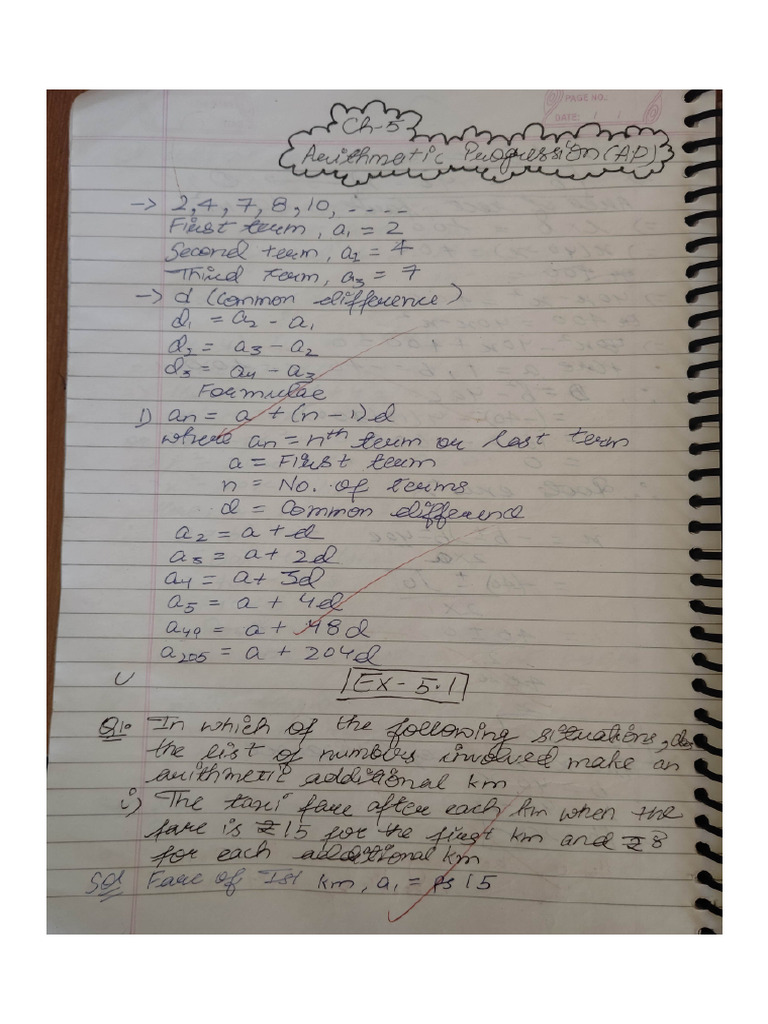 PAGE NO.
DATE: / /
Ch-5
Arithmatic Progression (AP)
→ 2,4,7,8,10,....
First term, a₁ = 2
Second term, a₂ = 4
Third term, a₃ = 7
→ d (common difference)
d₁ = a₂ - a₁
d₂ = a₃ - a₂
d₃ = a₄ - a₃
Formulae
1) an = a + (n-1)d
where an = nᵗʰ term or last term
a = First term
n = No. of terms
d = Common difference
a₂ = a + d
a₃ = a + 2d
a₄ = a + 3d
a₅ = a + 4d
a₄₉ = a + 48d
a₂₀₅ = a + 204d
EX-5.1
Q1. In which of the following situations, does
the list of numbers involved make an
arithmetic additional km
i) The taxi fare after each km when the
fare is ₹15 for the first km and ₹8
for each additional km
Sol Fare of Ist km, a₁ = Rs 15